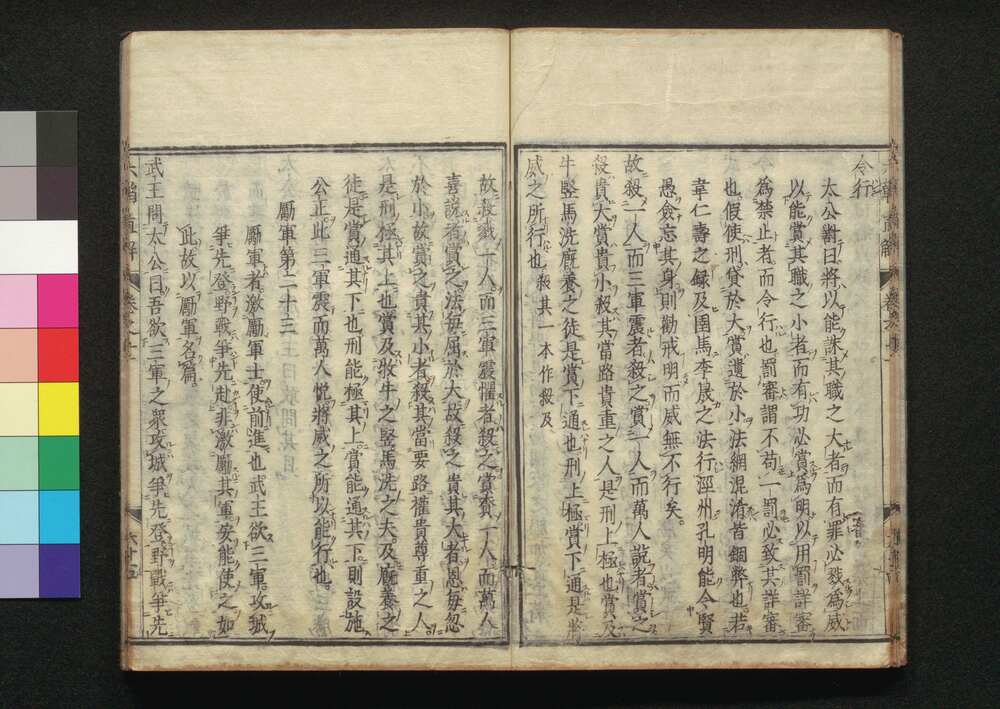 令行
太公對曰將以能誅其職之大者而有罪必殺爲威
以能賞其職之小者而有功必賞爲明以用罰詳審
爲禁止者而令行也罰審謂不苟一罰必致其詳審
也假使刑貸於大賞遺於小法網混淆皆錮弊也若
韋仁壽之録及圉馬李晟之法行涇州孔明能令賢
愚僉忘其身則勸戒明而威無不行矣
故殺一人而三軍震者殺之賞一人而萬人說者賞之
殺貴大賞貴小殺其當路貴重之人是刑上極也賞及
牛豎馬洗廐養之徒是賞下通也刑上極賞下通是將
威之所行也 殺其一本作殺及
故殺戮一人而三軍震懼者殺之賞賚一人而萬人
喜說者賞之法每屈於大故殺之貴其大者恩每忽
於小故賞之貴其小者殺其當要路權貴尊重之人
是刑極其上也賞及牧牛之豎馬洗之夫及廐養之
徒是賞通其下也刑能極其上賞能通其下則設施
公正此三軍震而萬人悅將威之所以能行也
勵軍第二十三
勵軍者激勵軍士使前進也武王欲三軍攻城
爭先登野戰爭先赴非激勵其軍安能使之如
此故以勵軍名篇
武王問太公曰吾欲三軍之衆攻城爭先登野戰爭先
六韜直解
卷之
六十五